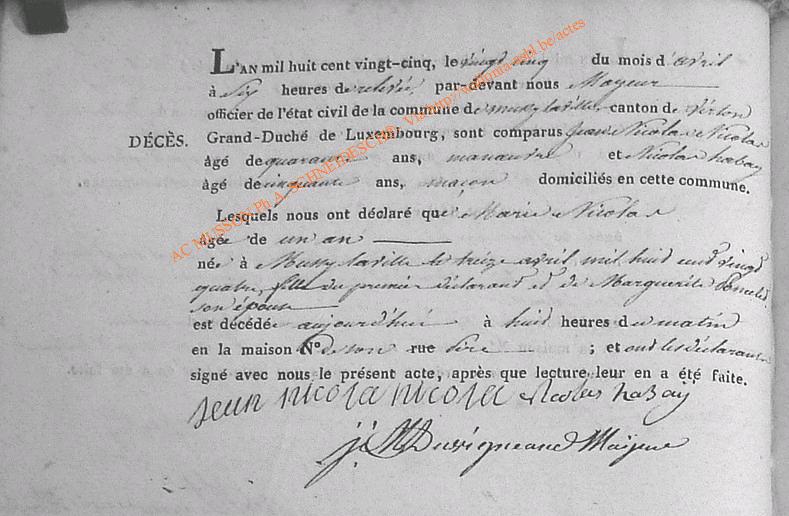 L'AN mil huit cent vingt-cinq, le vingt cinq du mois d'avril
à Six heures de relevée, par-devant nous Mayeur
officier de l'état civil de la commune de mussy laville canton de virton
DÉCÈS. Grand-Duché de Luxembourg, sont comparus Jean Nicolas Nicolas
âgé de quarante ans, manœuvre et Nicolas habay
âgé de cinquante ans, maçon domiciliés en cette commune.
Lesquels nous ont déclaré que Marie Nicolas
âgée de un an
née à Mussy laville le treize avril mil huit cent vingt
quatre, fille du premier déclarant et de Marguerite
son épouse
est décédée aujourd'hui à huit heures du matin
en la maison N° de son rue père ; et ont les déclarants
signé avec nous le présent acte, après que lecture leur en a été faite.
Jean nicola nicolas Nicolas habay
j: Duvigneaud Mayeur
AC MUSSON Ph A. SCHNEIDESCH